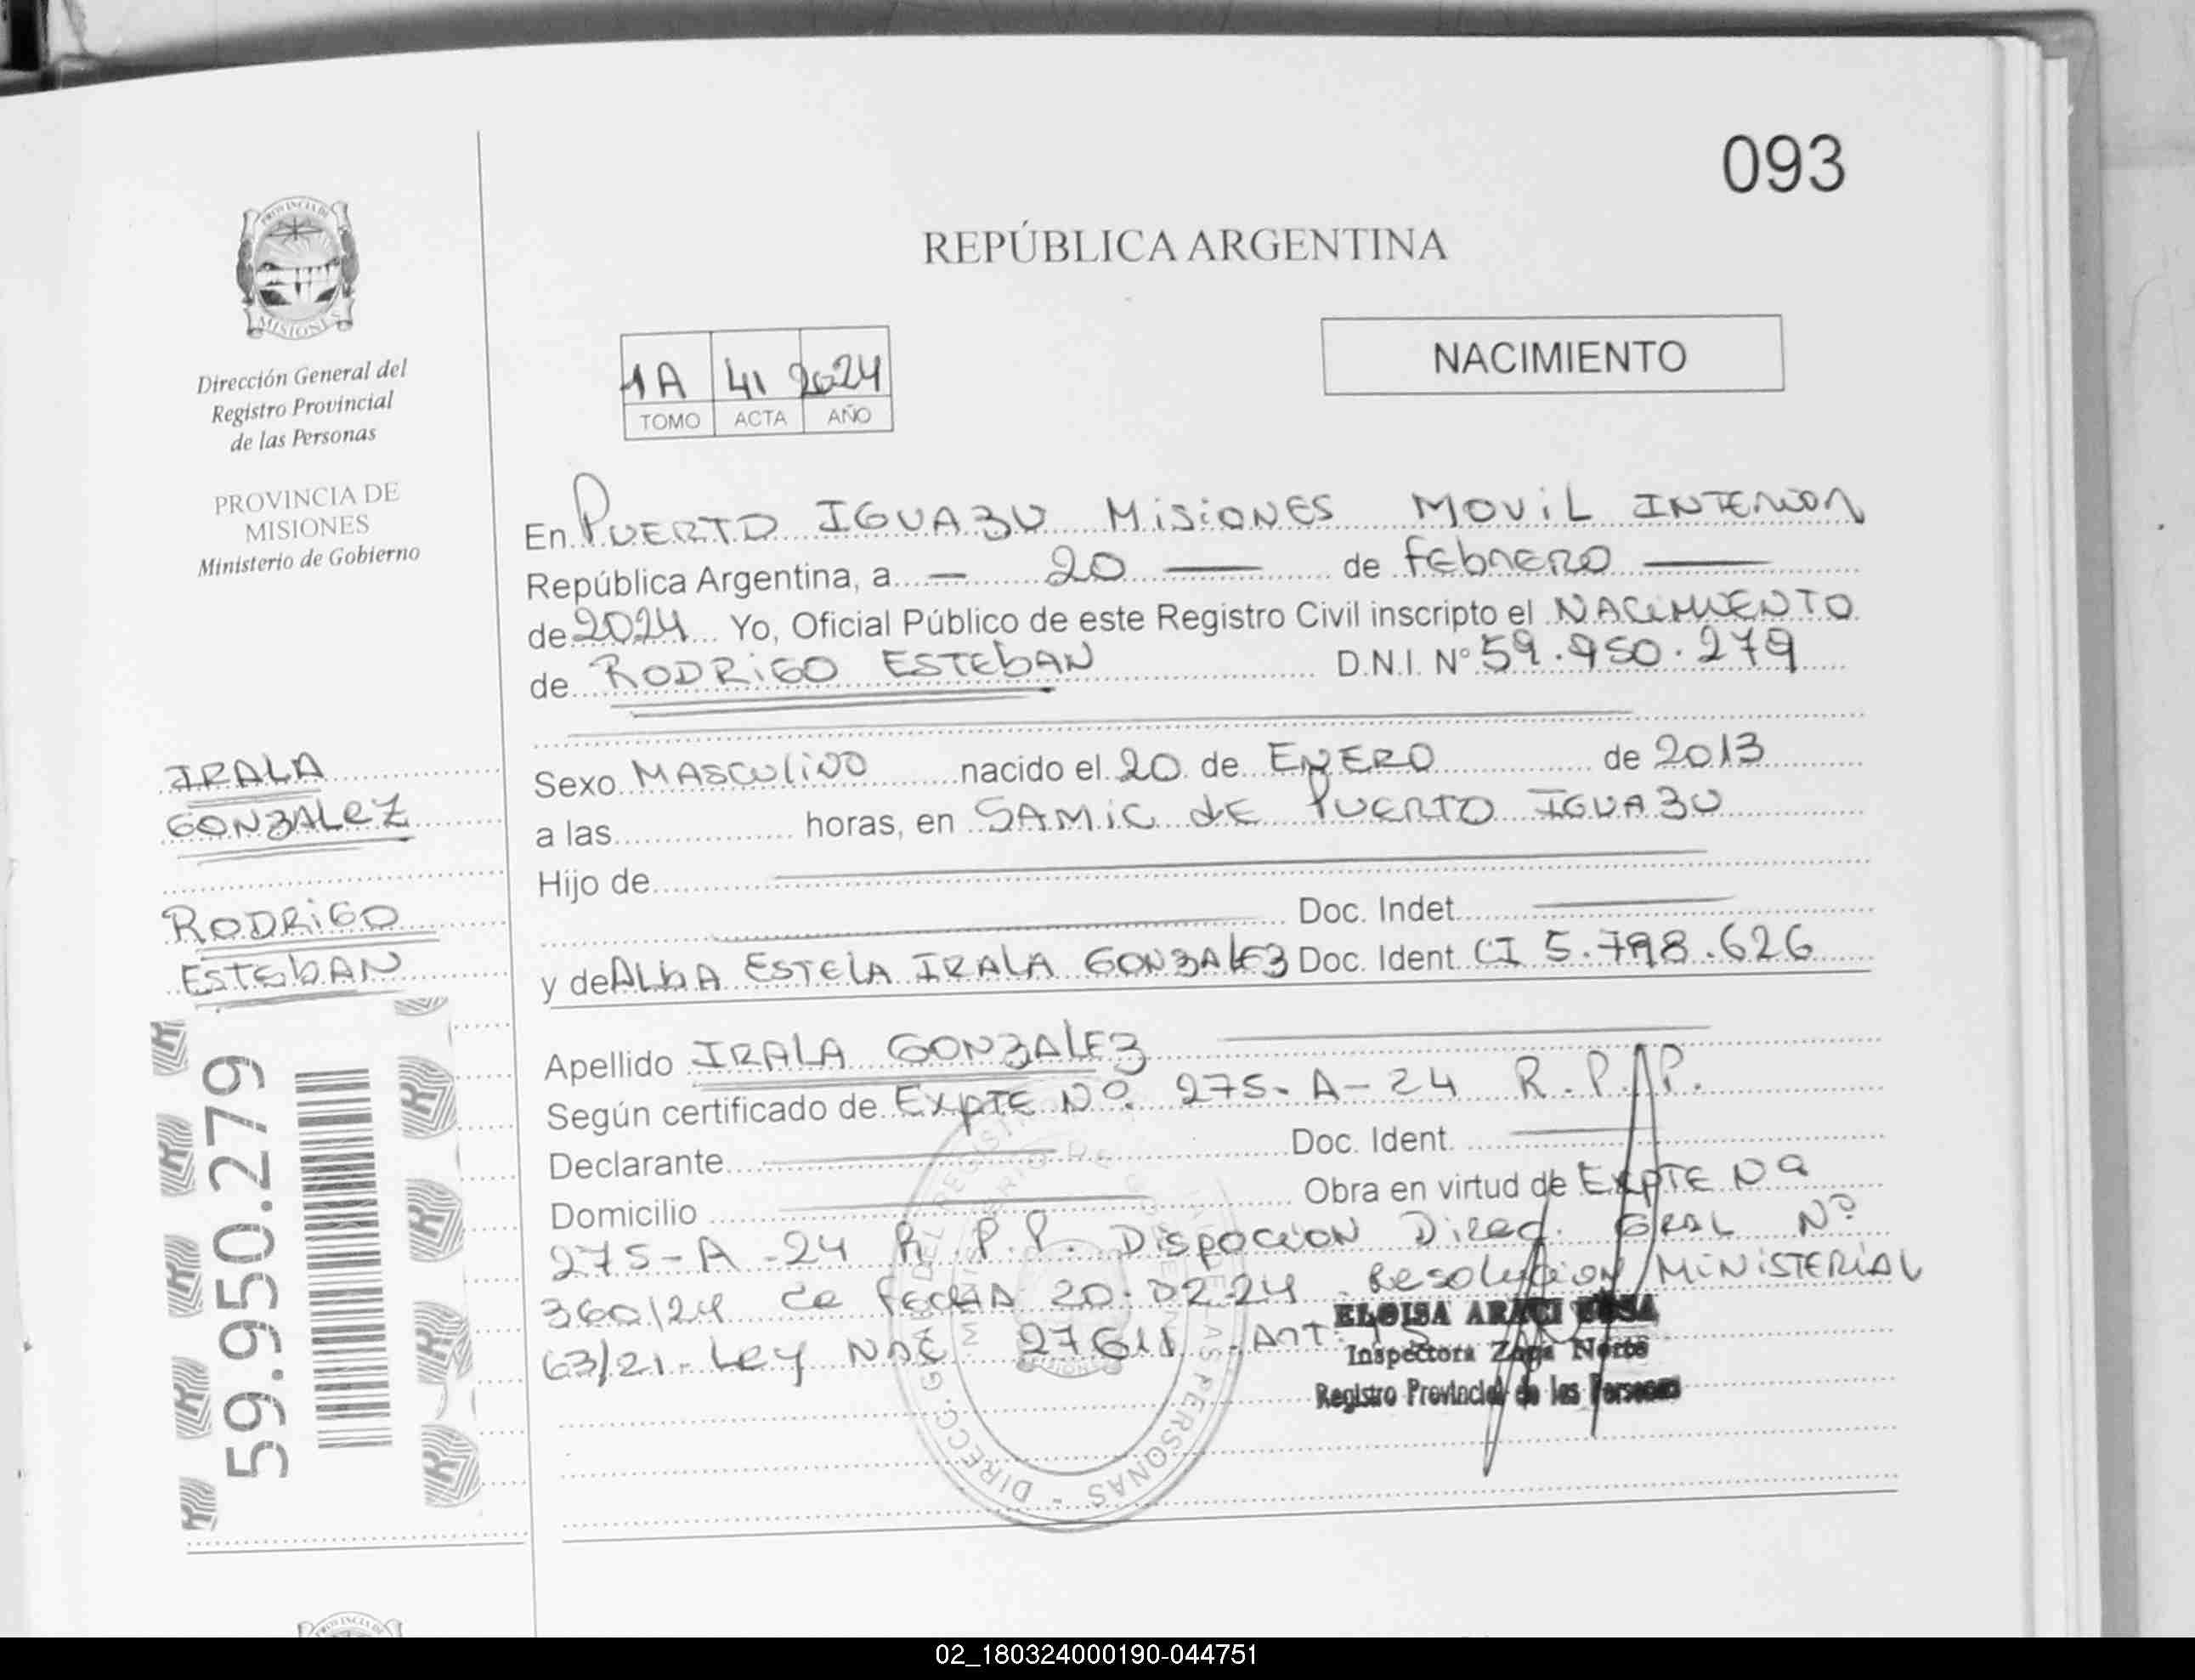 093
REPÚBLICA ARGENTINA
PROVINCIA DE
MISIONES
Dirección General del
Registro Provincial
de las Personas
PROVINCIA DE
MISIONES
Ministerio de Gobierno
1A 41 2024
TOMO ACTA AÑO
NACIMIENTO
En PUERTO IGUAZU MISIONES MOVIL INTERIOR
República Argentina, a 20 de febrero
de 2024 Yo, Oficial Público de este Registro Civil inscripto el NACIMIENTO
de RODRIGO ESTEBAN D.N.I. Nº 59.950.279
Sexo MASCULINO nacido el 20 de ENERO de 2013
a las horas, en SAMIC de PUERTO IGUAZU
Hijo de
Doc. Indet.
y de ALBA ESTELA IRALA GONZALEZ Doc. Ident. CI 5.798.626
Apellido IRALA GONZALEZ
Según certificado de EXPTE Nº 275-A-24 R.P.P.
Declarante Doc. Ident.
Domicilio Obra en virtud de EXPTE Nº
275-A-24 R.P.P. DISPOCION Direc. GRAL Nº
360/24 de FECHA 20.02.24. Resolucion MINISTERIAL
63/21- Ley NAC 27611. ANT:
ELOISA ARACI
Inspectora Zona Norte
Registro Provincial de las Personas
IRALA
GONZALEZ
RODRIGO
ESTEBAN
59.950.279
DIRECC. GRAL DEL REGISTRO DE LAS PERSONAS
02_180324000190-044751